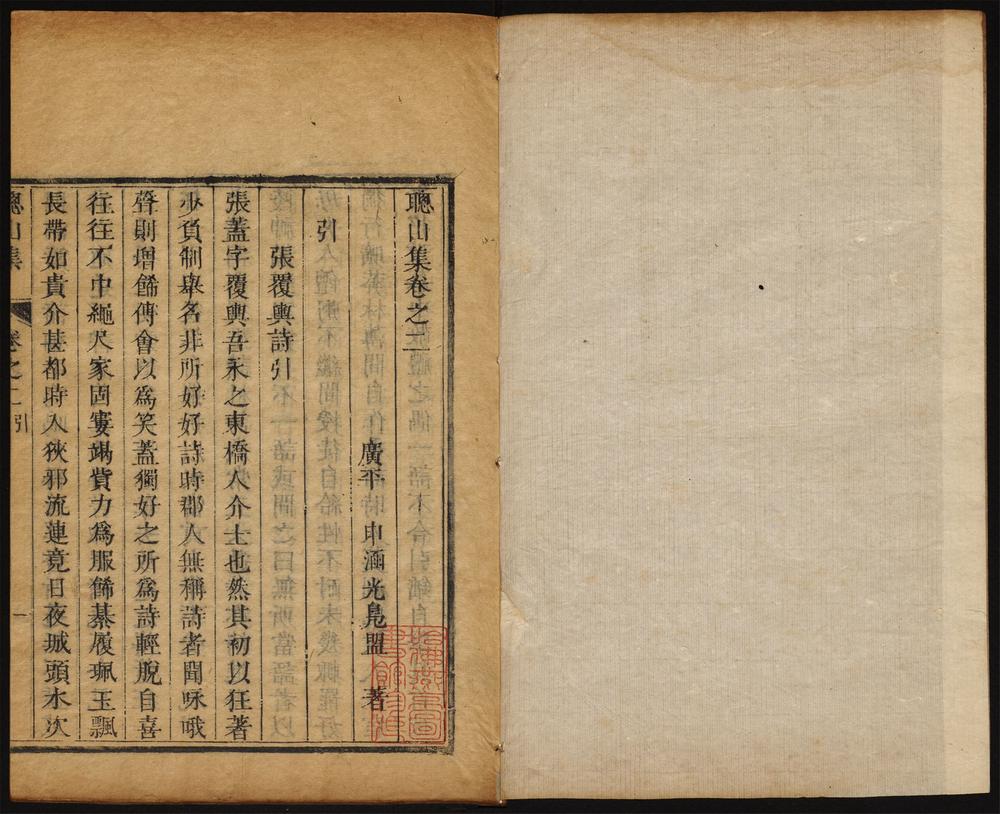 聰山集卷之二
廣平 申涵光鳧盟 著
引
張覆輿詩引
張蓋字覆輿吾永之東橋人介士也然其初以狂著
少負制舉名非所好好詩時郡人無稱詩者聞咏哦
聲則增餙傳會以為笑蓋獨好之所為詩輕脫自喜
往往不中繩尺家固寠竭貲力為服餙綦履珮玉飄
長帶如貴介甚都時入狹邪流連竟日夜城頭水次
聰山集 卷之二 引 一